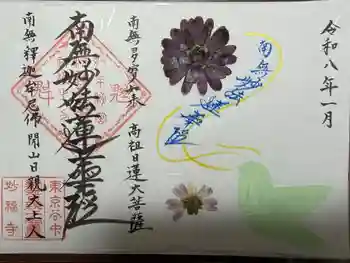 令和八年一月
南無妙法蓮華経
南無多宝如来 高祖日蓮大菩薩
南無妙法蓮華経
南無釋迦牟尼佛 開山日親大上人
東京谷中
妙福寺